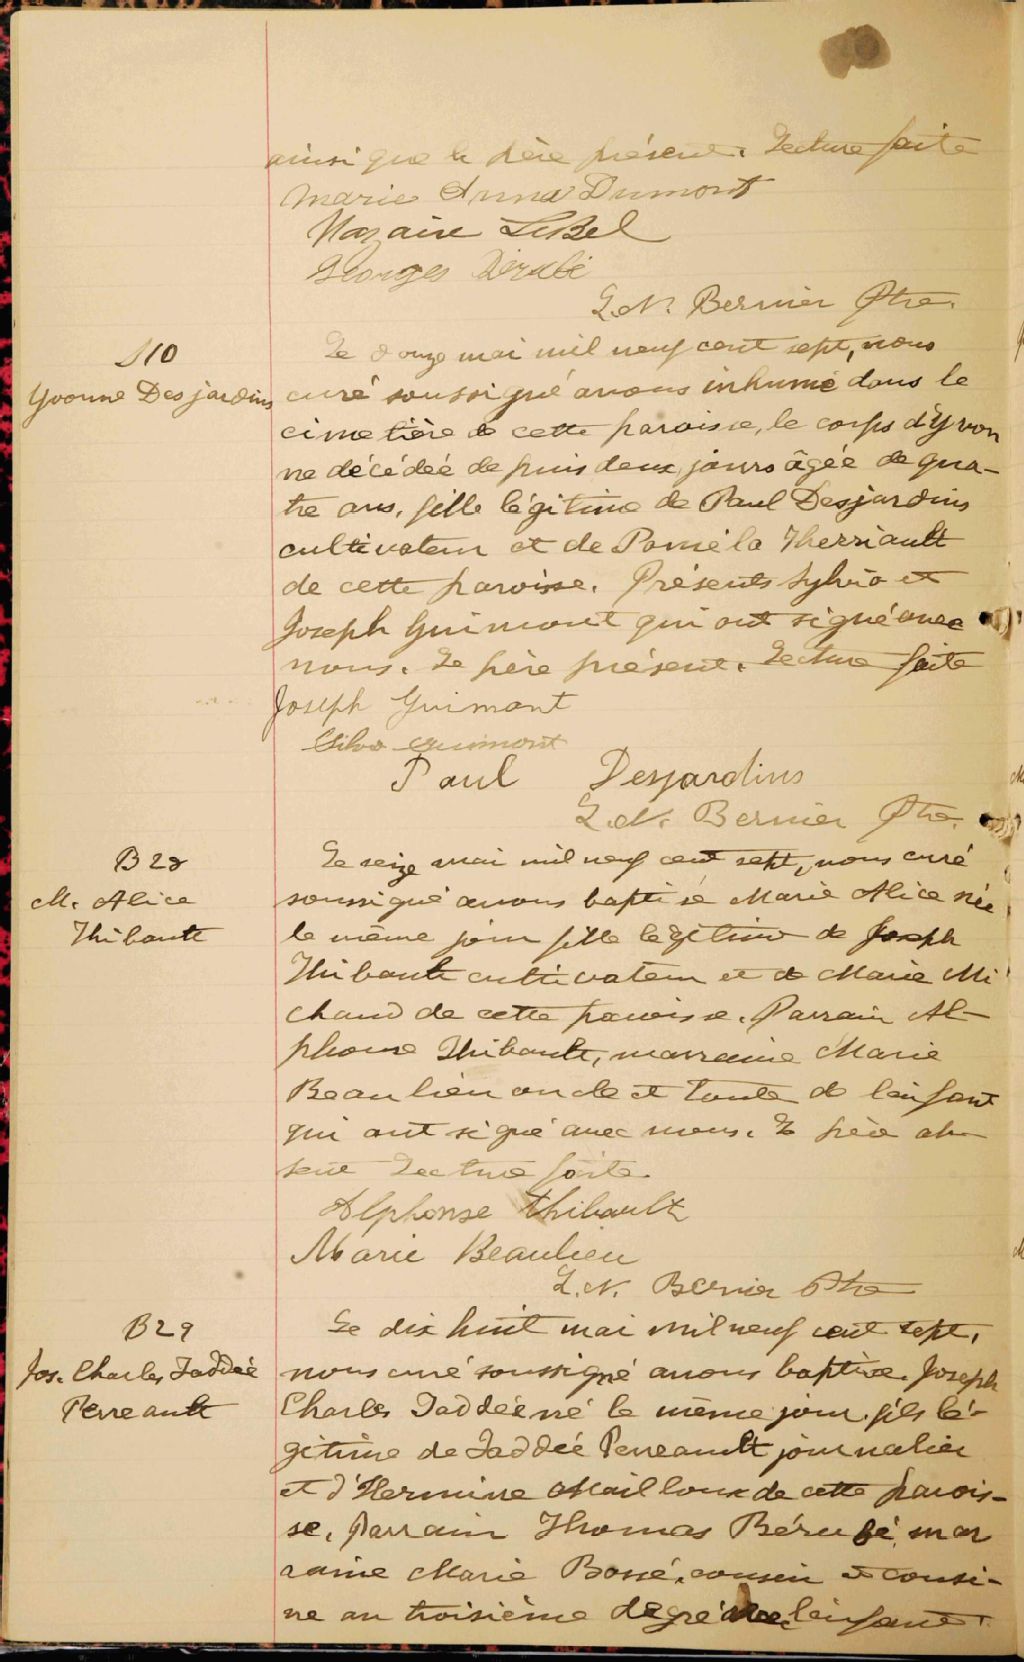 ainsi que le père présent. Lecture faite
Marie Anna Dumont
Nazaire LeBel
Georges Dérubé
L.N. Bernier Ptre.
S10
Yvonne Desjardins
Le douze mai mil neuf cent sept, nous
curé soussigné avons inhumé dans le
cimetière de cette paroisse, le corps d'Yvon
ne décédée depuis deux jours âgée de qua-
tre ans, fille légitime de Paul Desjardins
cultivateur et de Paméla Therriault
de cette paroisse. Présents Sylvio et
Joseph Guimont qui ont signé avec
nous. Le père présent. Lecture faite
Joseph Guimont
Silvo Guimont
Paul Desjardins
L.N. Bernier Ptre.
B28
M. Alice
Thibault
Le seize mai mil neuf cent sept, nous curé
soussigné avons baptisé Marie Alice née
le même jour fille légitime de Joseph
Thibault cultivateur et de Marie Mi
chaud de cette paroisse. Parrain Al-
phonse Thibault, marraine Marie
Beaulieu oncle et tante de l'enfant
qui ont signé avec nous. Le père ab-
sent Lecture faite.
Alphonse Thibault
Marie Beaulieu
L.N. Bernier Ptre
B29
Jos. Charles Taddée
Perreault
Le dix huit mai mil neuf cent sept,
nous curé soussigné avons baptisé. Joseph
Charles Taddée né le même jour, fils lé-
gitime de Taddée Perreault journalier
et d'Hermine Mailloux de cette parois-
se. Parrain Thomas Bérubé, mar
raine Marie Bossé, cousin et cousi-
ne au troisième degré de l'enfant